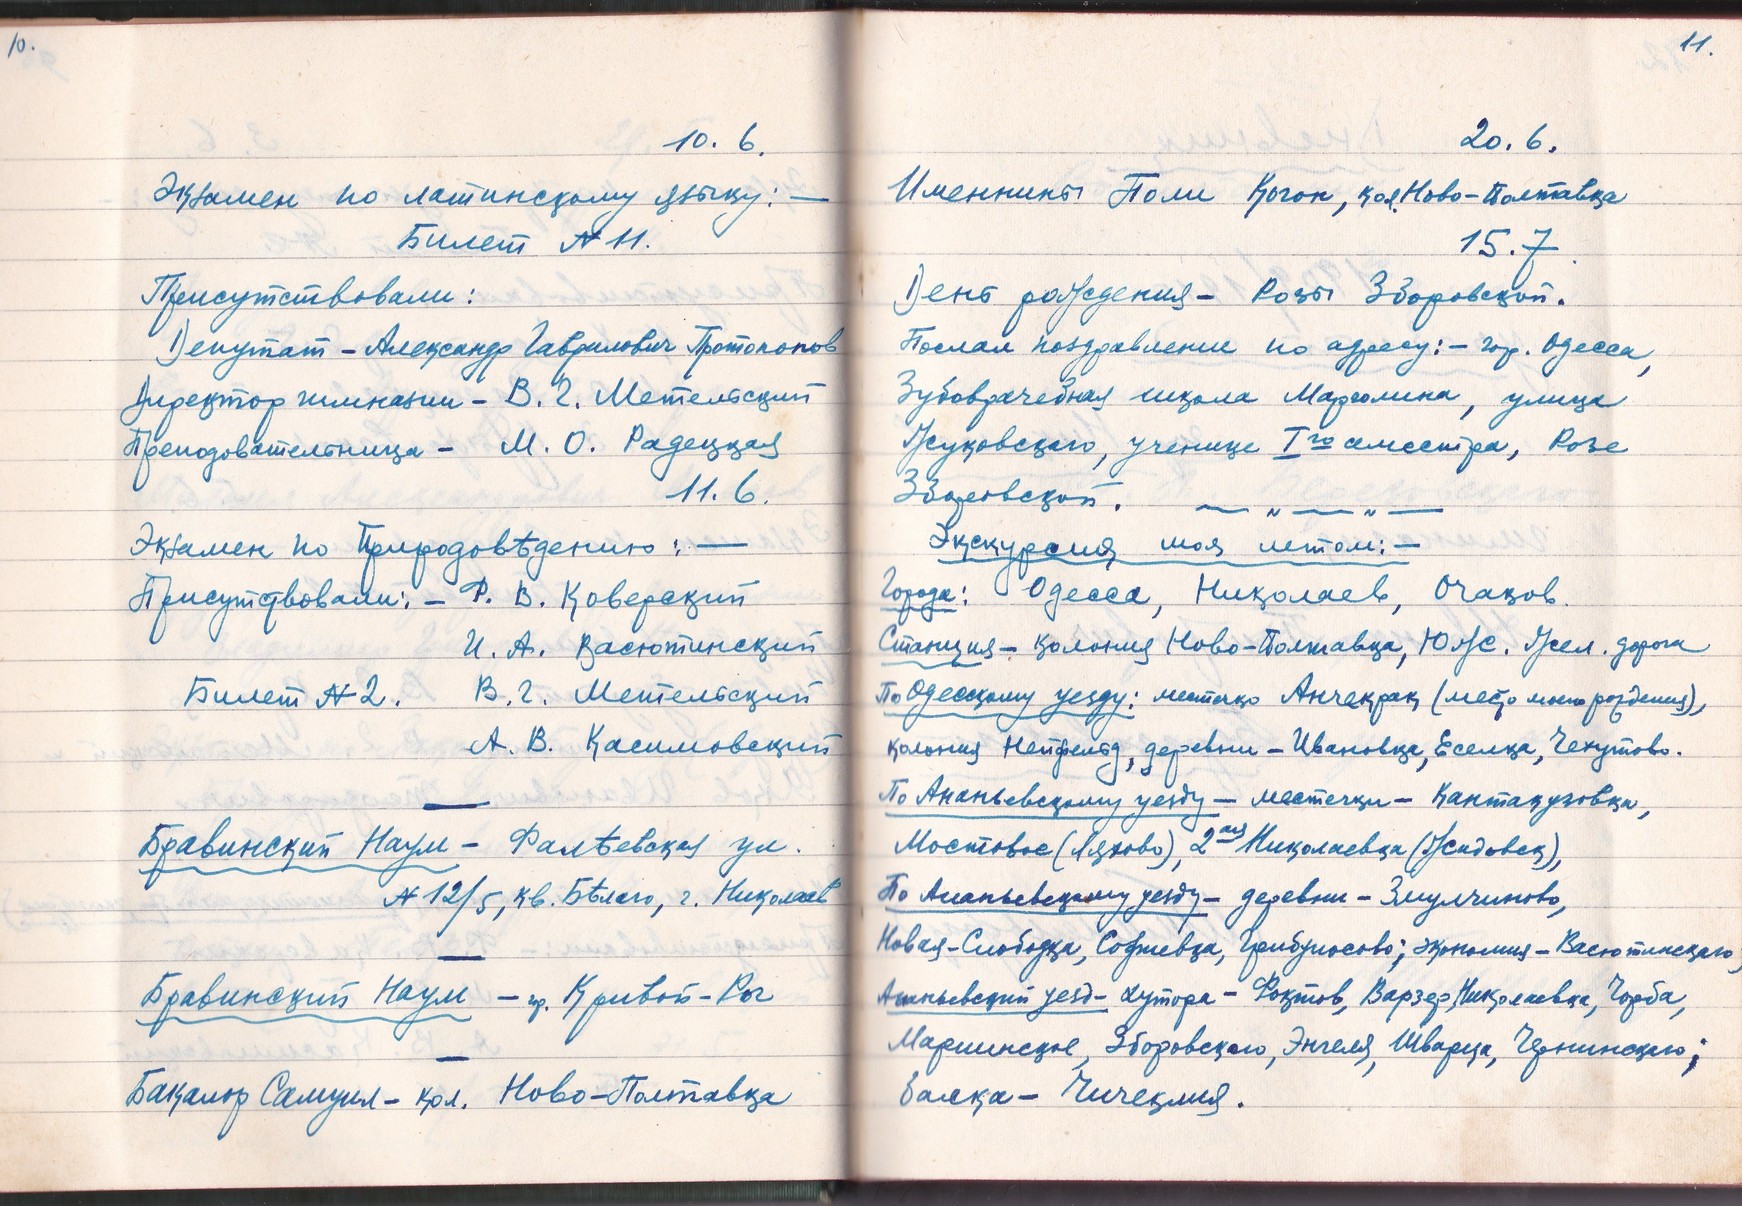 10.
10. 6.
Экзамен по латинскому языку: —
Билет № 11.
Присутствовали:
Депутат – Александр Гаврилович Протопопов
Директор гимназии – В. Г. Метельский
Преподовательница – М. О. Радецкая
11. 6.
Экзамен по Природовѣдению: —
Присутствовали: – Ф. В. Коверский
И. А. Васютинский
Билет № 2. В. Г. Метельский
А. В. Касимовский
Бравинский Наум – Фалѣевская ул.
№ 12/5, кв. Бѣлаго, г. Николаев
Бравинский Наум – гр. Кривой-Рог
Бакалор Самуил – кол. Ново-Полтавка
11.
20. 6.
Именнины Поли Коган, кол. Ново-Полтавка
15. 7.
День рождения – Розы Зборовской.
Послал поздравление по адресу: – гор. Одесса,
Зубоврачебная школа Марголина, улица
Жуковскаго, ученице Iго семестра, Розе
Зборовской. — „ — „ —
Экскурсия моя летом: –
Города: Одесса, Николаев, Очаков.
Станция – колония Ново-Полтавка, Юж. Жел. дорога
По Одесскому уезду: местечко Анчекрак (место моего рождения),
колония Нейфельд, деревни – Ивановка, Еселка, Чехутово.
По Ананьевскому уезду – местечки – Кантакузовка,
Мостовое (Ляхово), 2ая Николаевка (Жидовск),
По Ананьевскому уезду – деревни – Змулчиново,
Новая-Слободка, Софиевка, Грибоносово; экономия – Васютинскаго;
Ананьевский уезд – хутора – Фоктов, Варзер, Николаевка, Чорба,
Мариинское, Зборовскаго, Энгеля, Шварца, Чернинскаго;
балка – Чичеклия.